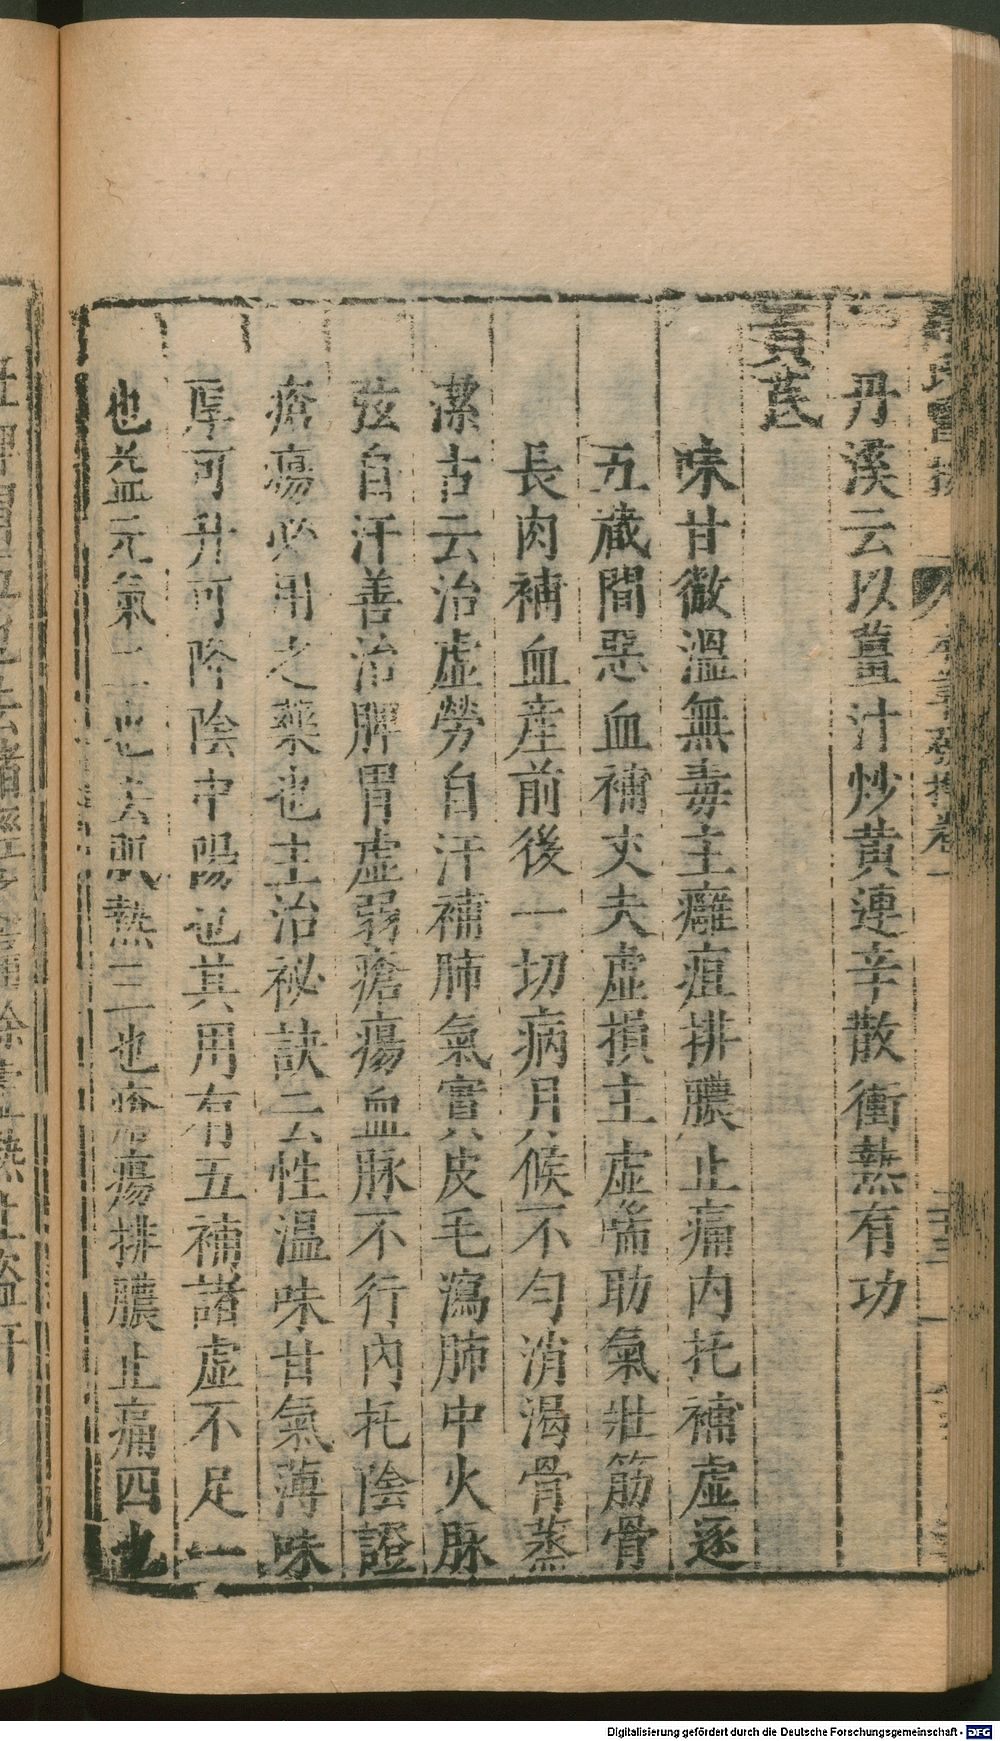 丹溪云以薑汁炒黃連辛散衝熱有功
黃芪
味甘微溫無毒主癰疽排膿止痛內托補虛逐
五蔵間惡血補丈夫虛損主虛喘助氣壯筋骨
長肉補血産前後一切病月候不勻消渴骨蒸
潔古云治虛勞自汗補肺氣實皮毛瀉肺中火脉
弦自汗善治脾胃虛弱瘡瘍血脉不行內托陰證
瘡瘍必用之藥也主治祕訣云性溫味甘氣薄味
厚可升可降陰中陽也其用有五補諸虛不足一
也益元氣二也去肌熱三也瘡瘍排膿止痛四也
Digitalisierung gefördert durch die Deutsche Forschungsgemeinschaft - DFG